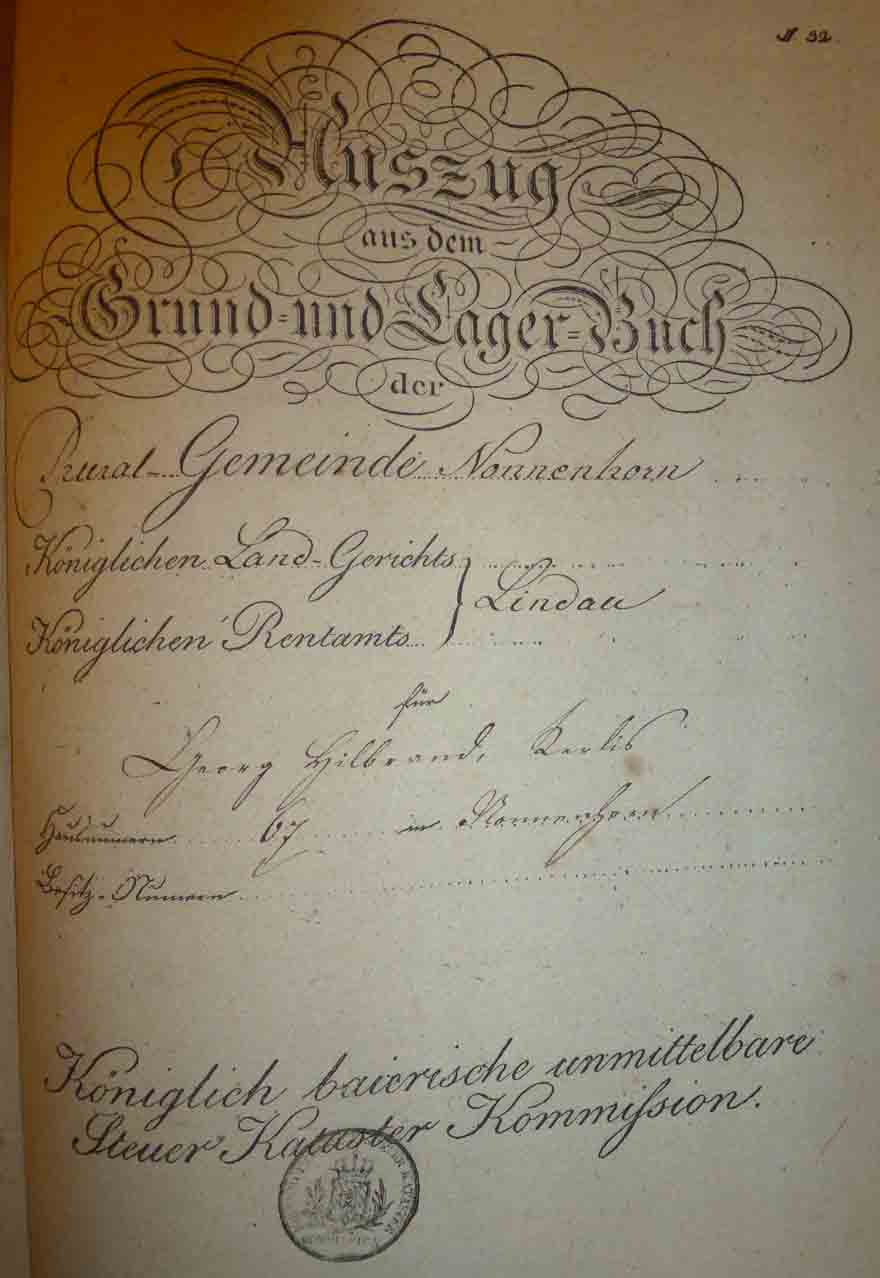 N 32.
Auszug
aus dem
Grund- und Lager-Buch
der
Rural-Gemeinde Nonnenhorn
Königlichen Land-Gerichts } Lindau
Königlichen Rentamts
für
Georg Hilbrand,
Hausnumern 67 in Nonnenhorn
Besitz-Numern
Königlich baierische unmittelbare
Steuer Kataster Kommißion.